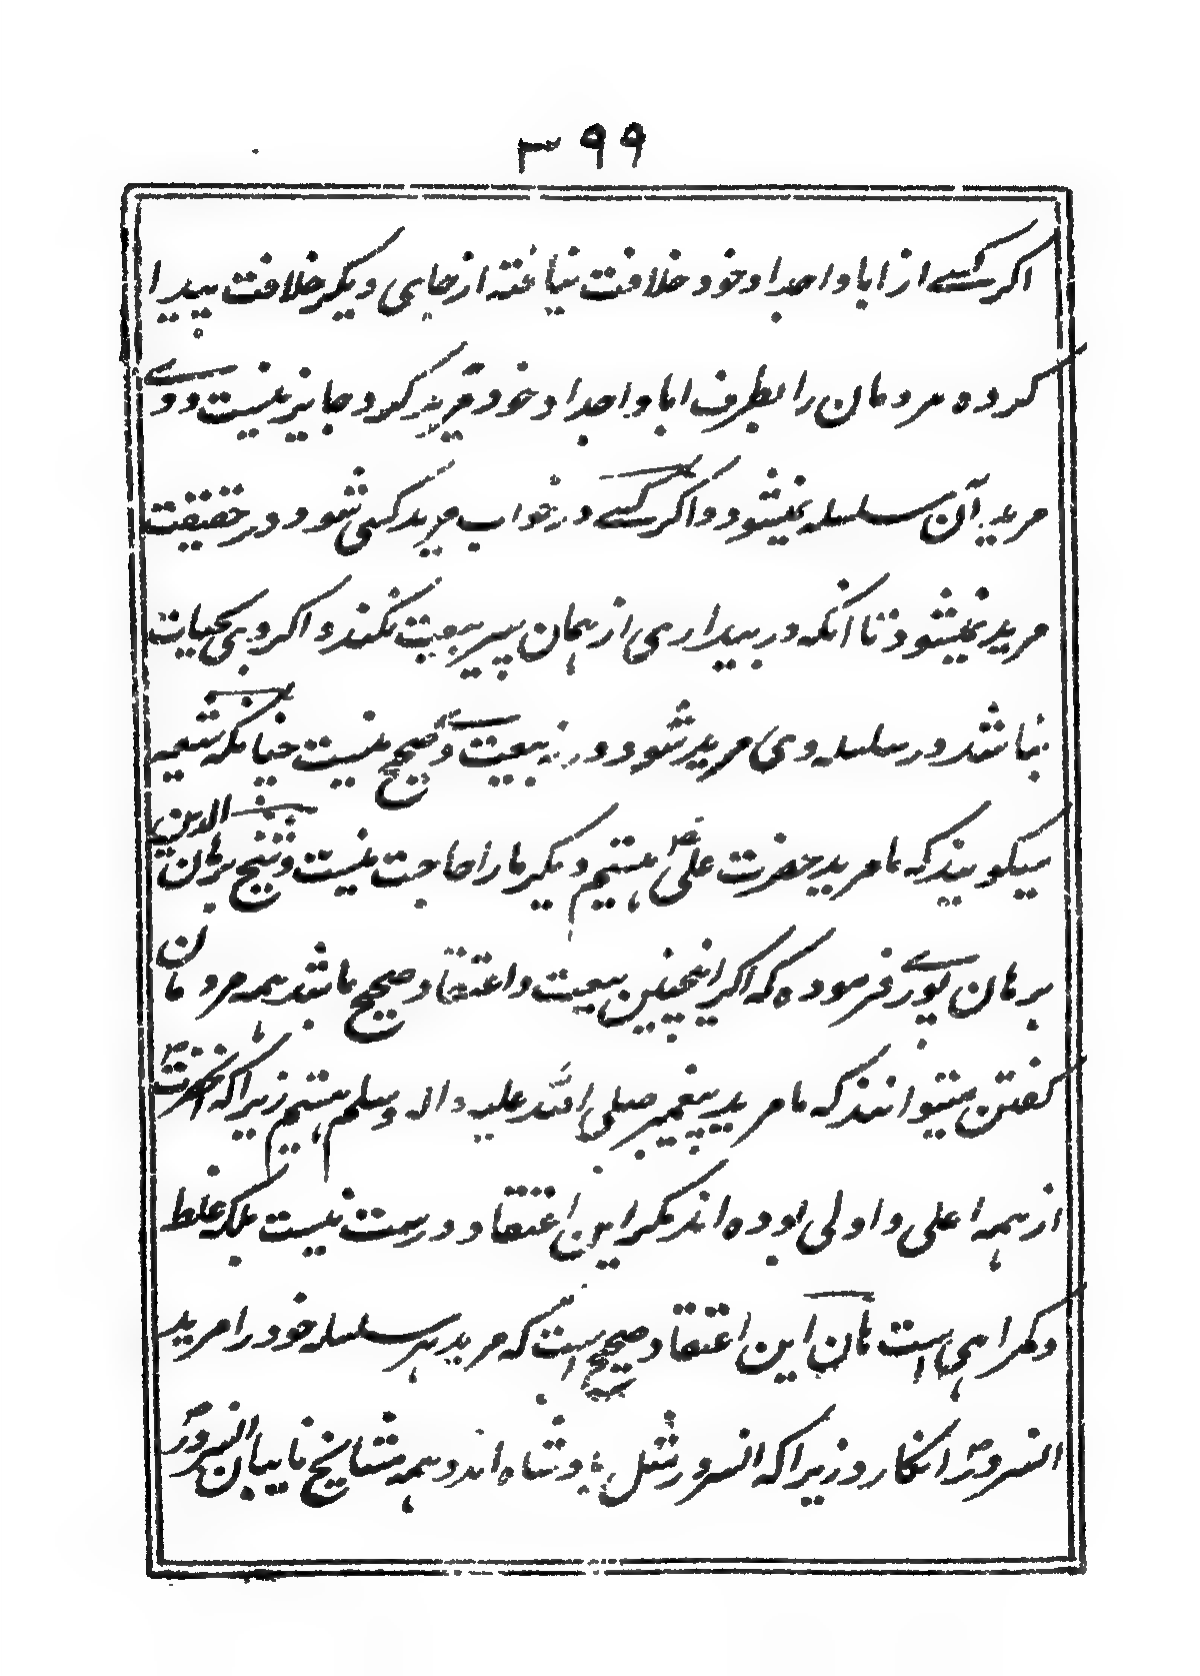 ۳۹۹
اکر کسے از ابا و اجداد خود خلافت نیافته از جای دیکر خلافت پیدا
کرده مردمان را بطرف ابا و اجداد خود مرید کرد جایز نیست و وے
مرید آن سلسله نمیشود و اکر کسے در خواب مرید کسی شود در حقیقت
مرید نمیشود تا انکه در بیداری از همان پیر بیعت نکند و اکر وی بحیات
نباشد در سلسله وی مرید شود ورنه بیعت وے صحیح نیست چنانکه شیعه
میکویند که ما مرید حضرت علی هستیم دیکر ما را حاجت نیست و شیخ برهان الدین
برهان پورے فرموده که اکر اینچنین بیعت و اعتقاد صحیح باشد همه مردمان
کفتن میتوانند که ما مرید پیغمبر صلی الله علیه و اله وسلم هستیم زیرا که انحضرتؐ
از همه اعلی و اولی بوده اند مکر این اعتقاد درست نیست بلکه غلط
و کمراهی است هان این اعتقاد صحیح است که مرید هر سلسله خود را مرید
انسرورؐ انکارد زیرا که انسرور مثل پادشاه اند و همه مشایخ نایبان انسرورؐ